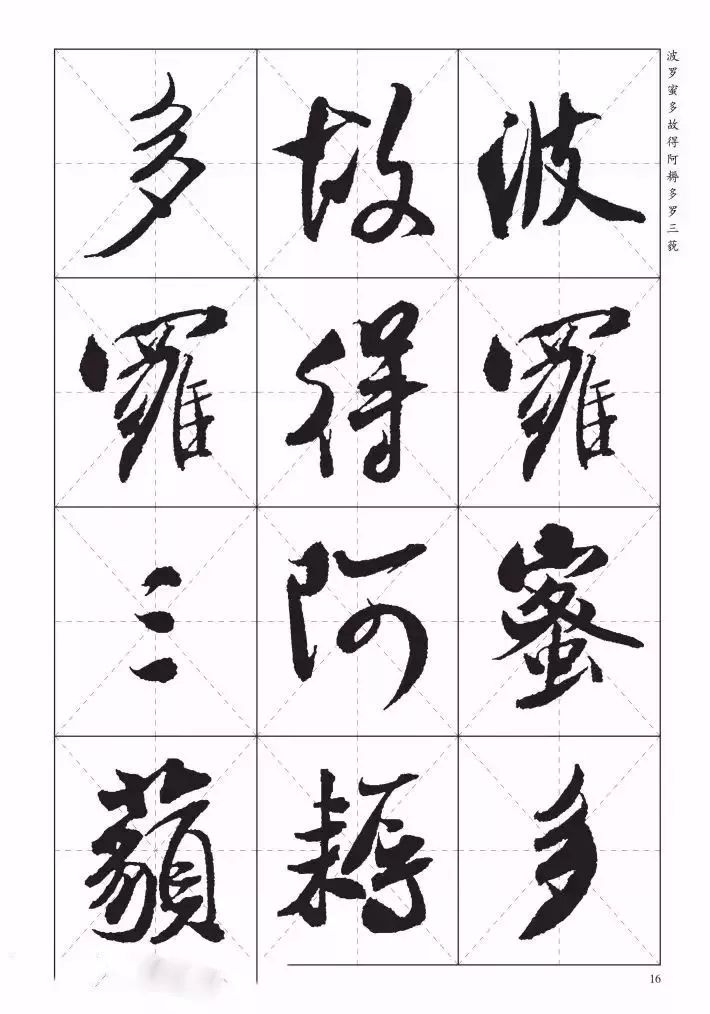 波罗蜜多故得阿耨多罗三藐
波羅蜜多
故得阿耨
多羅三藐
16